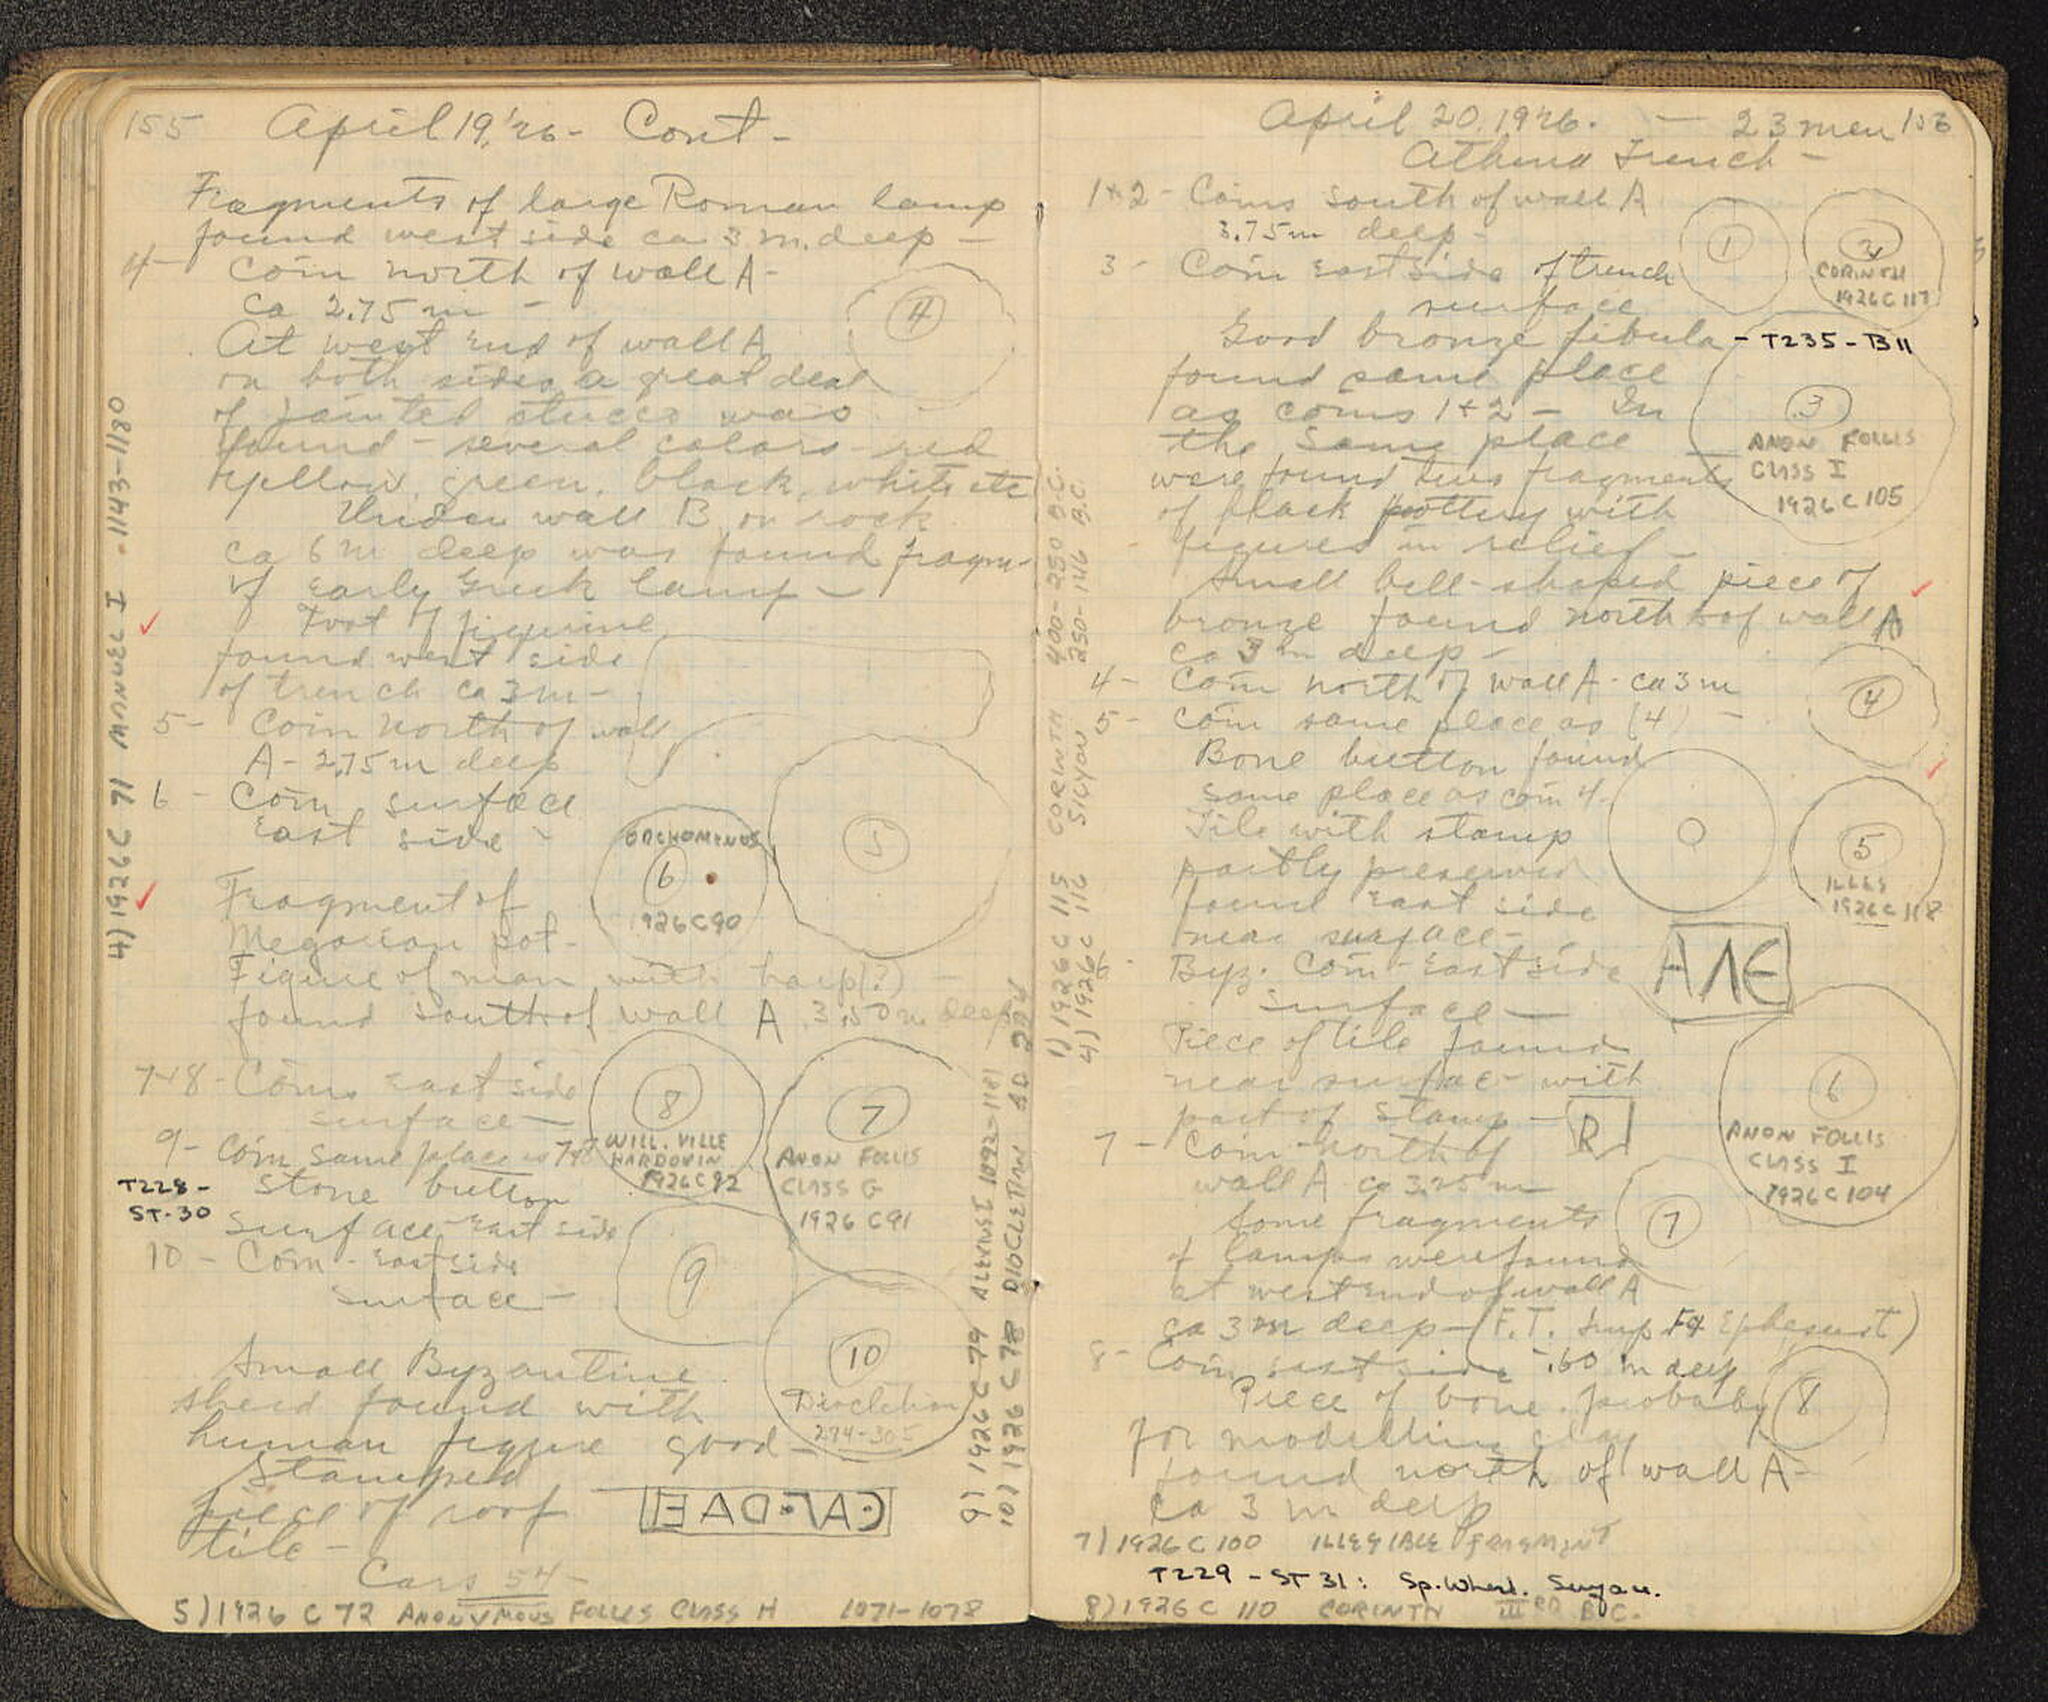 155 April 19, '26 - Cont -
Fragments of large Roman lamp
found west side ca 3 m. deep -
4- Coin north of wall A -
ca 2.75 m -
4
At west end of wall A
on both sides a great deal
of painted stucco was
found - several colors - red
yellow, green, black, white etc
Under wall B on rock
ca 6 m deep was found fragm-
of early Greek lamp -
Foot of figurine
found west side
of trench ca 3 m -
5- Coin north of wall
A - 2.75 m deep
5
6 - Coin surface
East side -
ORCHOMENUS
6
1926 C 90
Fragment of
Megarian pot -
Figure of man with harp (?) -
found south of wall A 3.50 m deep
7+8 - Coins East side
surface -
8
WILL. VILLE
HARDOUIN
1926 C 92
7
ANON FOLLIS
CLASS G
1926 C 91
9 - Coin same place as 7+8
T228 -
ST-30
Stone button
surface - East side
10 - Coin - East side
surface -
9
10
Diocletian
294-305
Small Byzantine
sherd found with
human figure good -
Stamped
piece of roof
tile -
Cars 54 -
4) 1926 C 71 MANUEL I 1143-1180
9) 1926 C 79 ALEXIUS I 1092-1181
10) 1926 C 78 DIOCLETIAN AD 294
5) 1926 C 72 ANONYMOUS FOLLIS CLASS H 1071-1078
April 20, 1926. - 23 men 156
Athena Trench -
1+2 - Coins south of wall A
3.75 m deep -
1
CORINTH
1926 C 117
3 - Coin East side of trench
surface
Good bronze fibula - T235 - B11
found same place
as coins 1+2 - In
the same place
were found two fragments
of black pottery with
figures in relief -
3
ANON FOLLIS
CLASS I
1926 C 105
Small bell-shaped piece of
bronze found north of wall A
ca 3 m deep -
4 - Coin north of wall A - ca 3 m
5 - Coin same place as (4) -
4
Bone button found
same place as coin 4 -
Tile with stamp
partly preserved
found East side
near surface -
5
ILLEG
1926 C 118
ΑΛΕ
Byz. Coin - East side
surface -
Piece of tile found
near surface - with
part of stamp -
R
6
ANON FOLLIS
CLASS I
1926 C 104
7 - Coin North of
wall A ca 3.25 m
7
Some fragments
of lamps were found
at west end of wall A
ca 3 m deep -
8 - Coin East side - .60 m deep
8
Piece of bone, probably
for modelling clay
found north of wall A -
ca 3 m deep
1) 1926 C 115 CORINTH 400-250 B.C.
4) 1926 C 116 SICYON 250-146 B.C.
7) 1926 C 100 ILLEGIBLE FRAGMENT
T229 - ST 31: Sp. Whorl.
8) 1926 C 110 CORINTH IIIRD B.C.